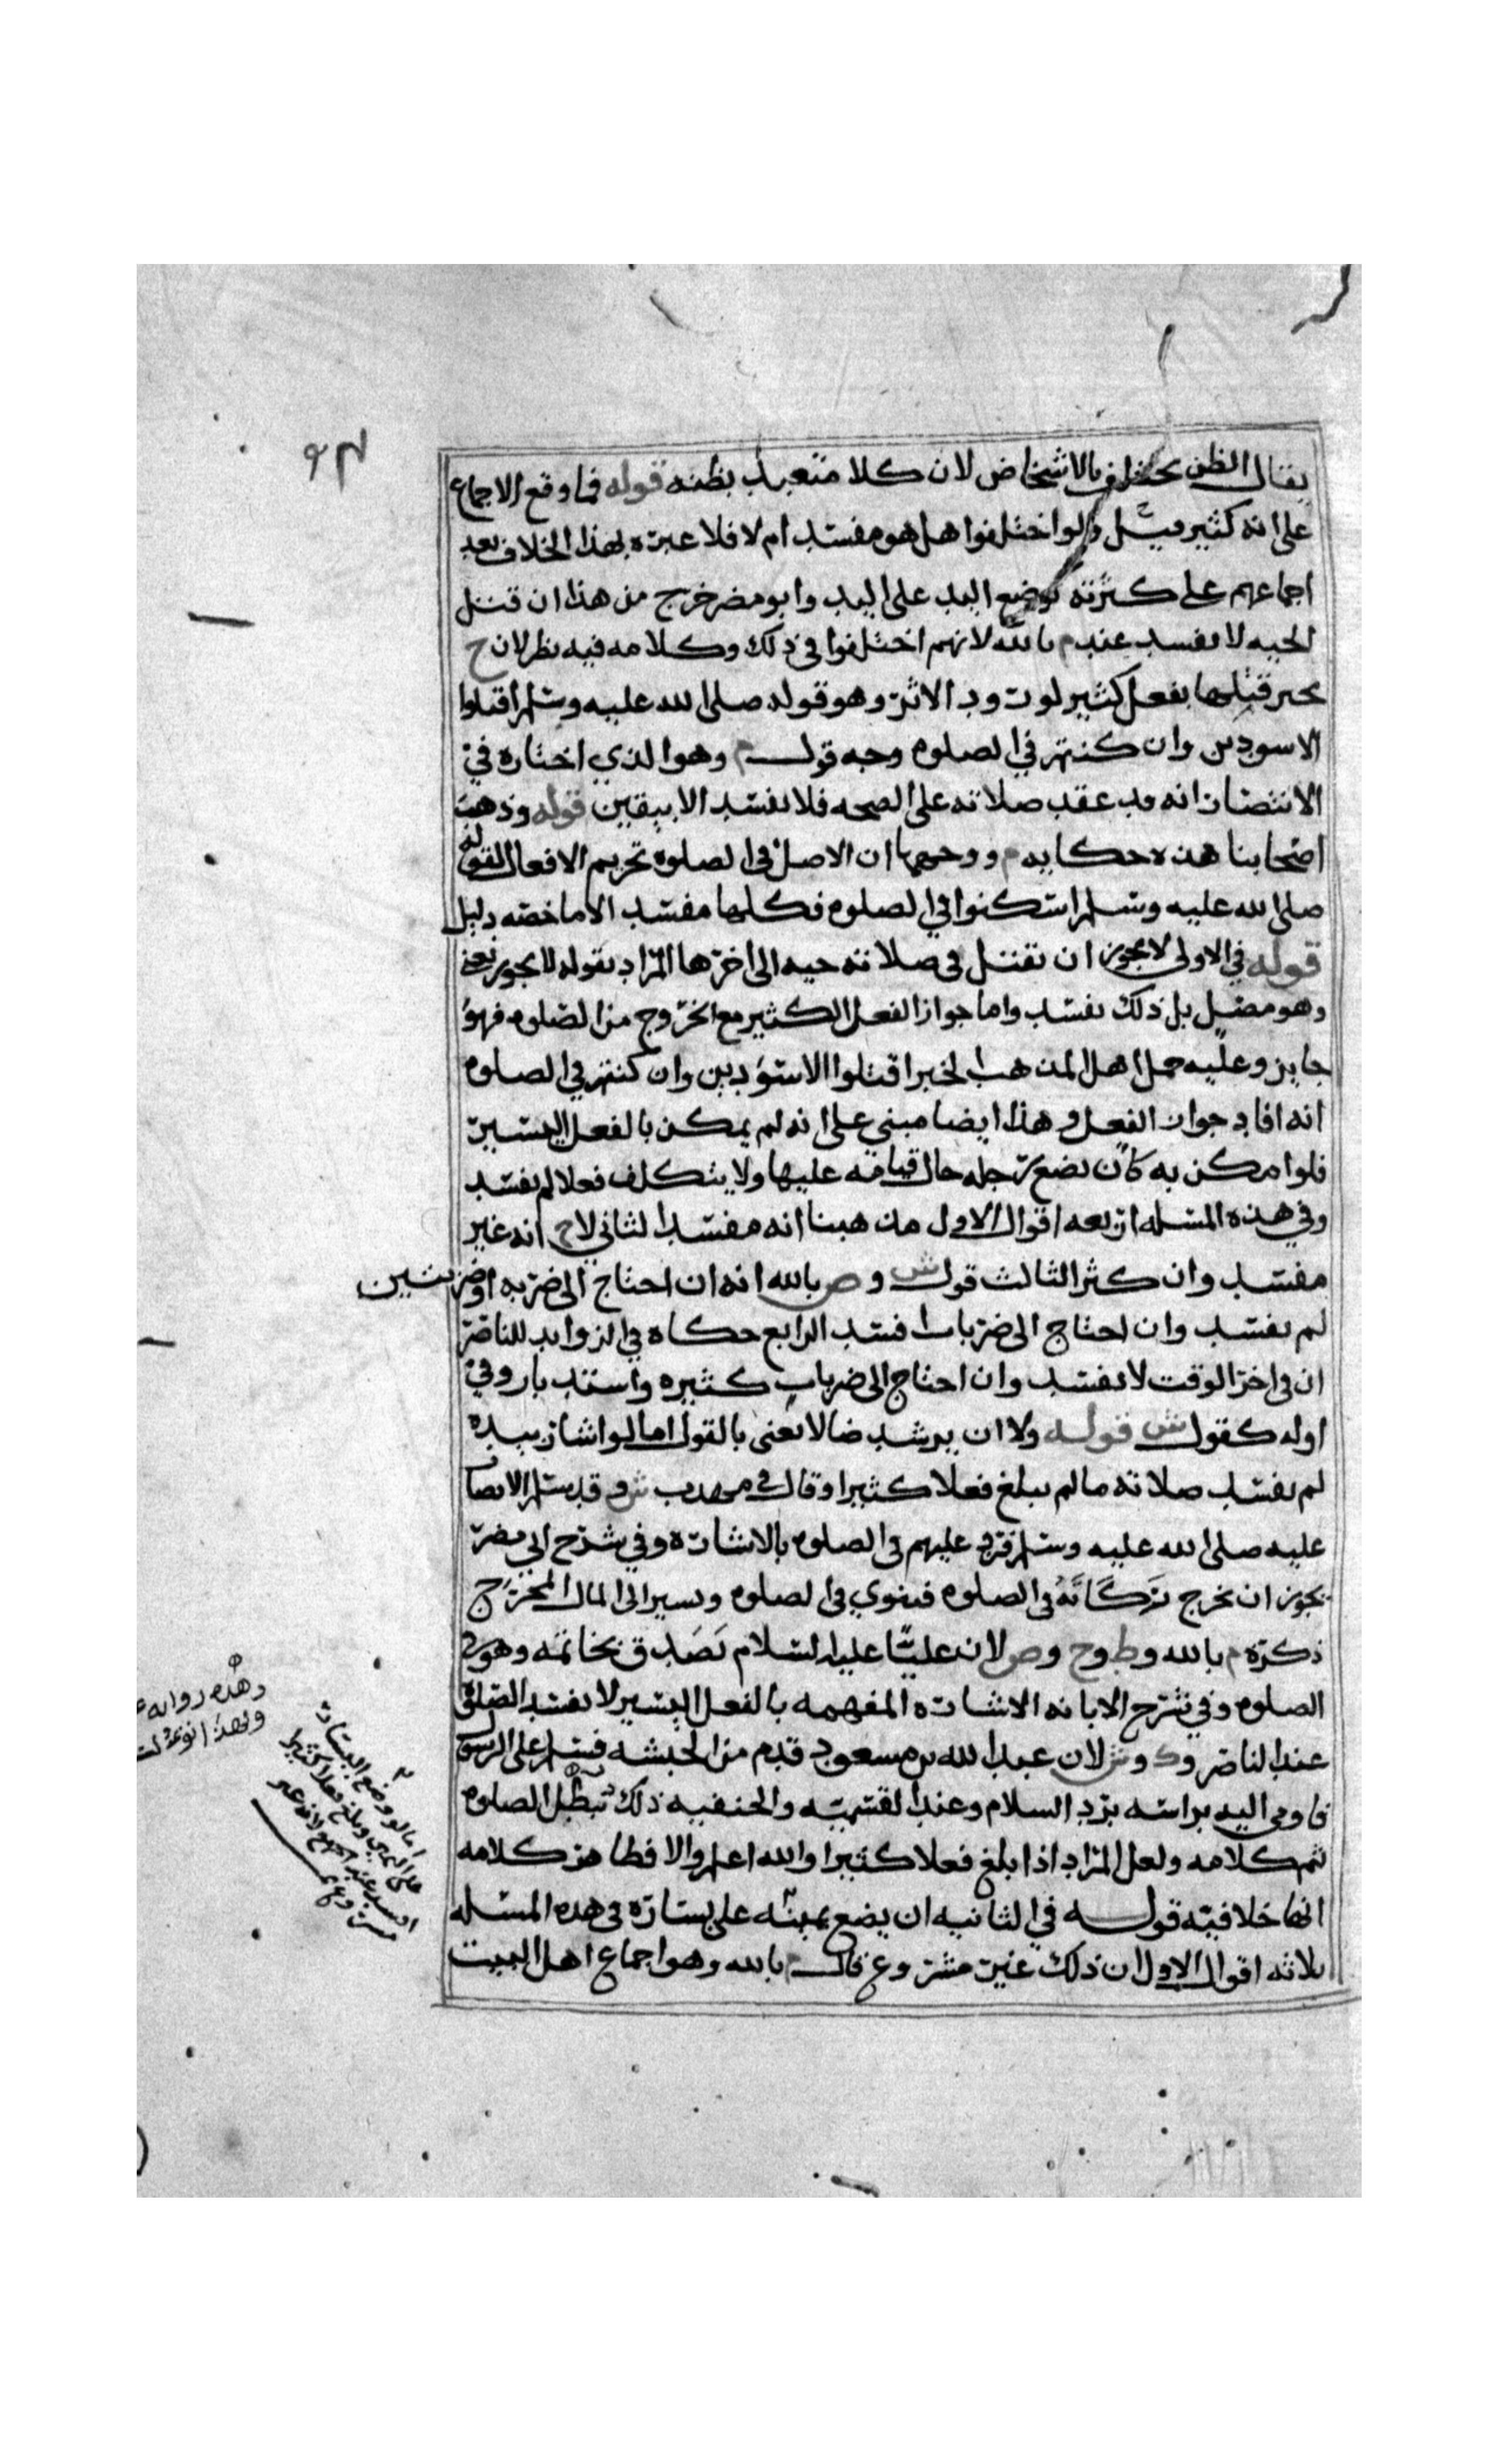 يقال الظن يختلف بالاشخاص لان كلا متعبد بظنه قوله فما وقع الاجماع
على انه كثير مثل ولو اختلفوا هل هو مفسد ام لا فلا عبرة بهذا الخلاف بعد
اجماعهم على كثرته كوضع اليد على اليد وابو مضر خرج من هذا ان قتل
الحيه لا يفسد عند م بالله لانهم اختلفوا في ذلك وكلامه فيه نظر لان ح
يجيز قتلها بفعل كثير لورود الاثر وهو قوله صلى الله عليه وسلم اقتلوا
الاسودين وان كنتم في الصلوه وجه قول م وهو الذي اختاره في
الانتصار انه قد عقد صلاته على الصحه فلا يفسد الا بيقين قوله وذهب
اصحابنا هذه حكايه م ووجهها ان الاصل في الصلوه تحريم الافعال لقوله
صلى الله عليه وسلم اسكنوا في الصلوه فكلها مفسد الا ما خصه دليل
قوله في الاولى لا يجوز ان يقتل في صلاته حيه الى اخرها المراد بقوله لا يجوز يعني
وهو مصل بل ذلك يفسد واما جواز الفعل الكثير مع الخروج من الصلوه فهو
جايز وعليه حمل اهل المذهب الخبر اقتلوا الاسودين وان كنتم في الصلوه
انه افاد جواز الفعل وهذا ايضا مبني على انه لم يمكن بالفعل اليسير
فلو امكن به كان يضع رجله حال قيامه عليها ولا يتكلف فعلا لم يفسد
وفي هذه المسله اربعه اقوال الاول مذهبنا انه مفسد الثاني لاح انه غير
مفسد وان كثر الثالث قول ش وص بالله انه ان احتاج الى ضربه او ضربتين
لم يفسد وان احتاج الى ضربات فسد الرابع حكاه في الزوايد للناصر
ان في اخر الوقت لا يفسد وان احتاج الى ضربات كثيره واستدبار وفي
اوله كقول ش قوله ولا ان يرشد ضالا يعني بالقول اما لو اشار بيده
لم يفسد صلاته ما لم يبلغ فعلا كثيرا وقال في مهذب ش وقد سلم الانصار
عليه صلى الله عليه وسلم فرد عليهم في الصلوه بالاشارة وفي شرح ابي مضر
يجوز ان يخرج زكاته في الصلوه فينوي في الصلوه ويسير الى المال المخرج
ذكره م بالله وط وح وص لان عليا عليه السلام تصدق بخاتمه وهو في
الصلوه وفي شرح الابانه الاشاره المفهمه بالفعل اليسير لا يفسد الصلوة
عند الناصر وك وش لان عبد الله بن مسعود قدم من الحبشه فسلم على الرسول
فاومى اليه براسه برد السلام وعند القسميه والحنفيه ذلك تبطل الصلوه
تم كلامه ولعل المراد اذا بلغ فعلا كثيرا والله اعلم والا فظاهر كلامه
انها خلافيه قوله في الثانيه ان يضع يمينه على يساره في هذه المسله
ثلاثه اقوال الاول ان ذلك غير مشروع قال م بالله وهو اجماع اهل البيت
وهذه روايه
اما لو وضع اليسار
على اليمين وبلغ فعلا كثيرا